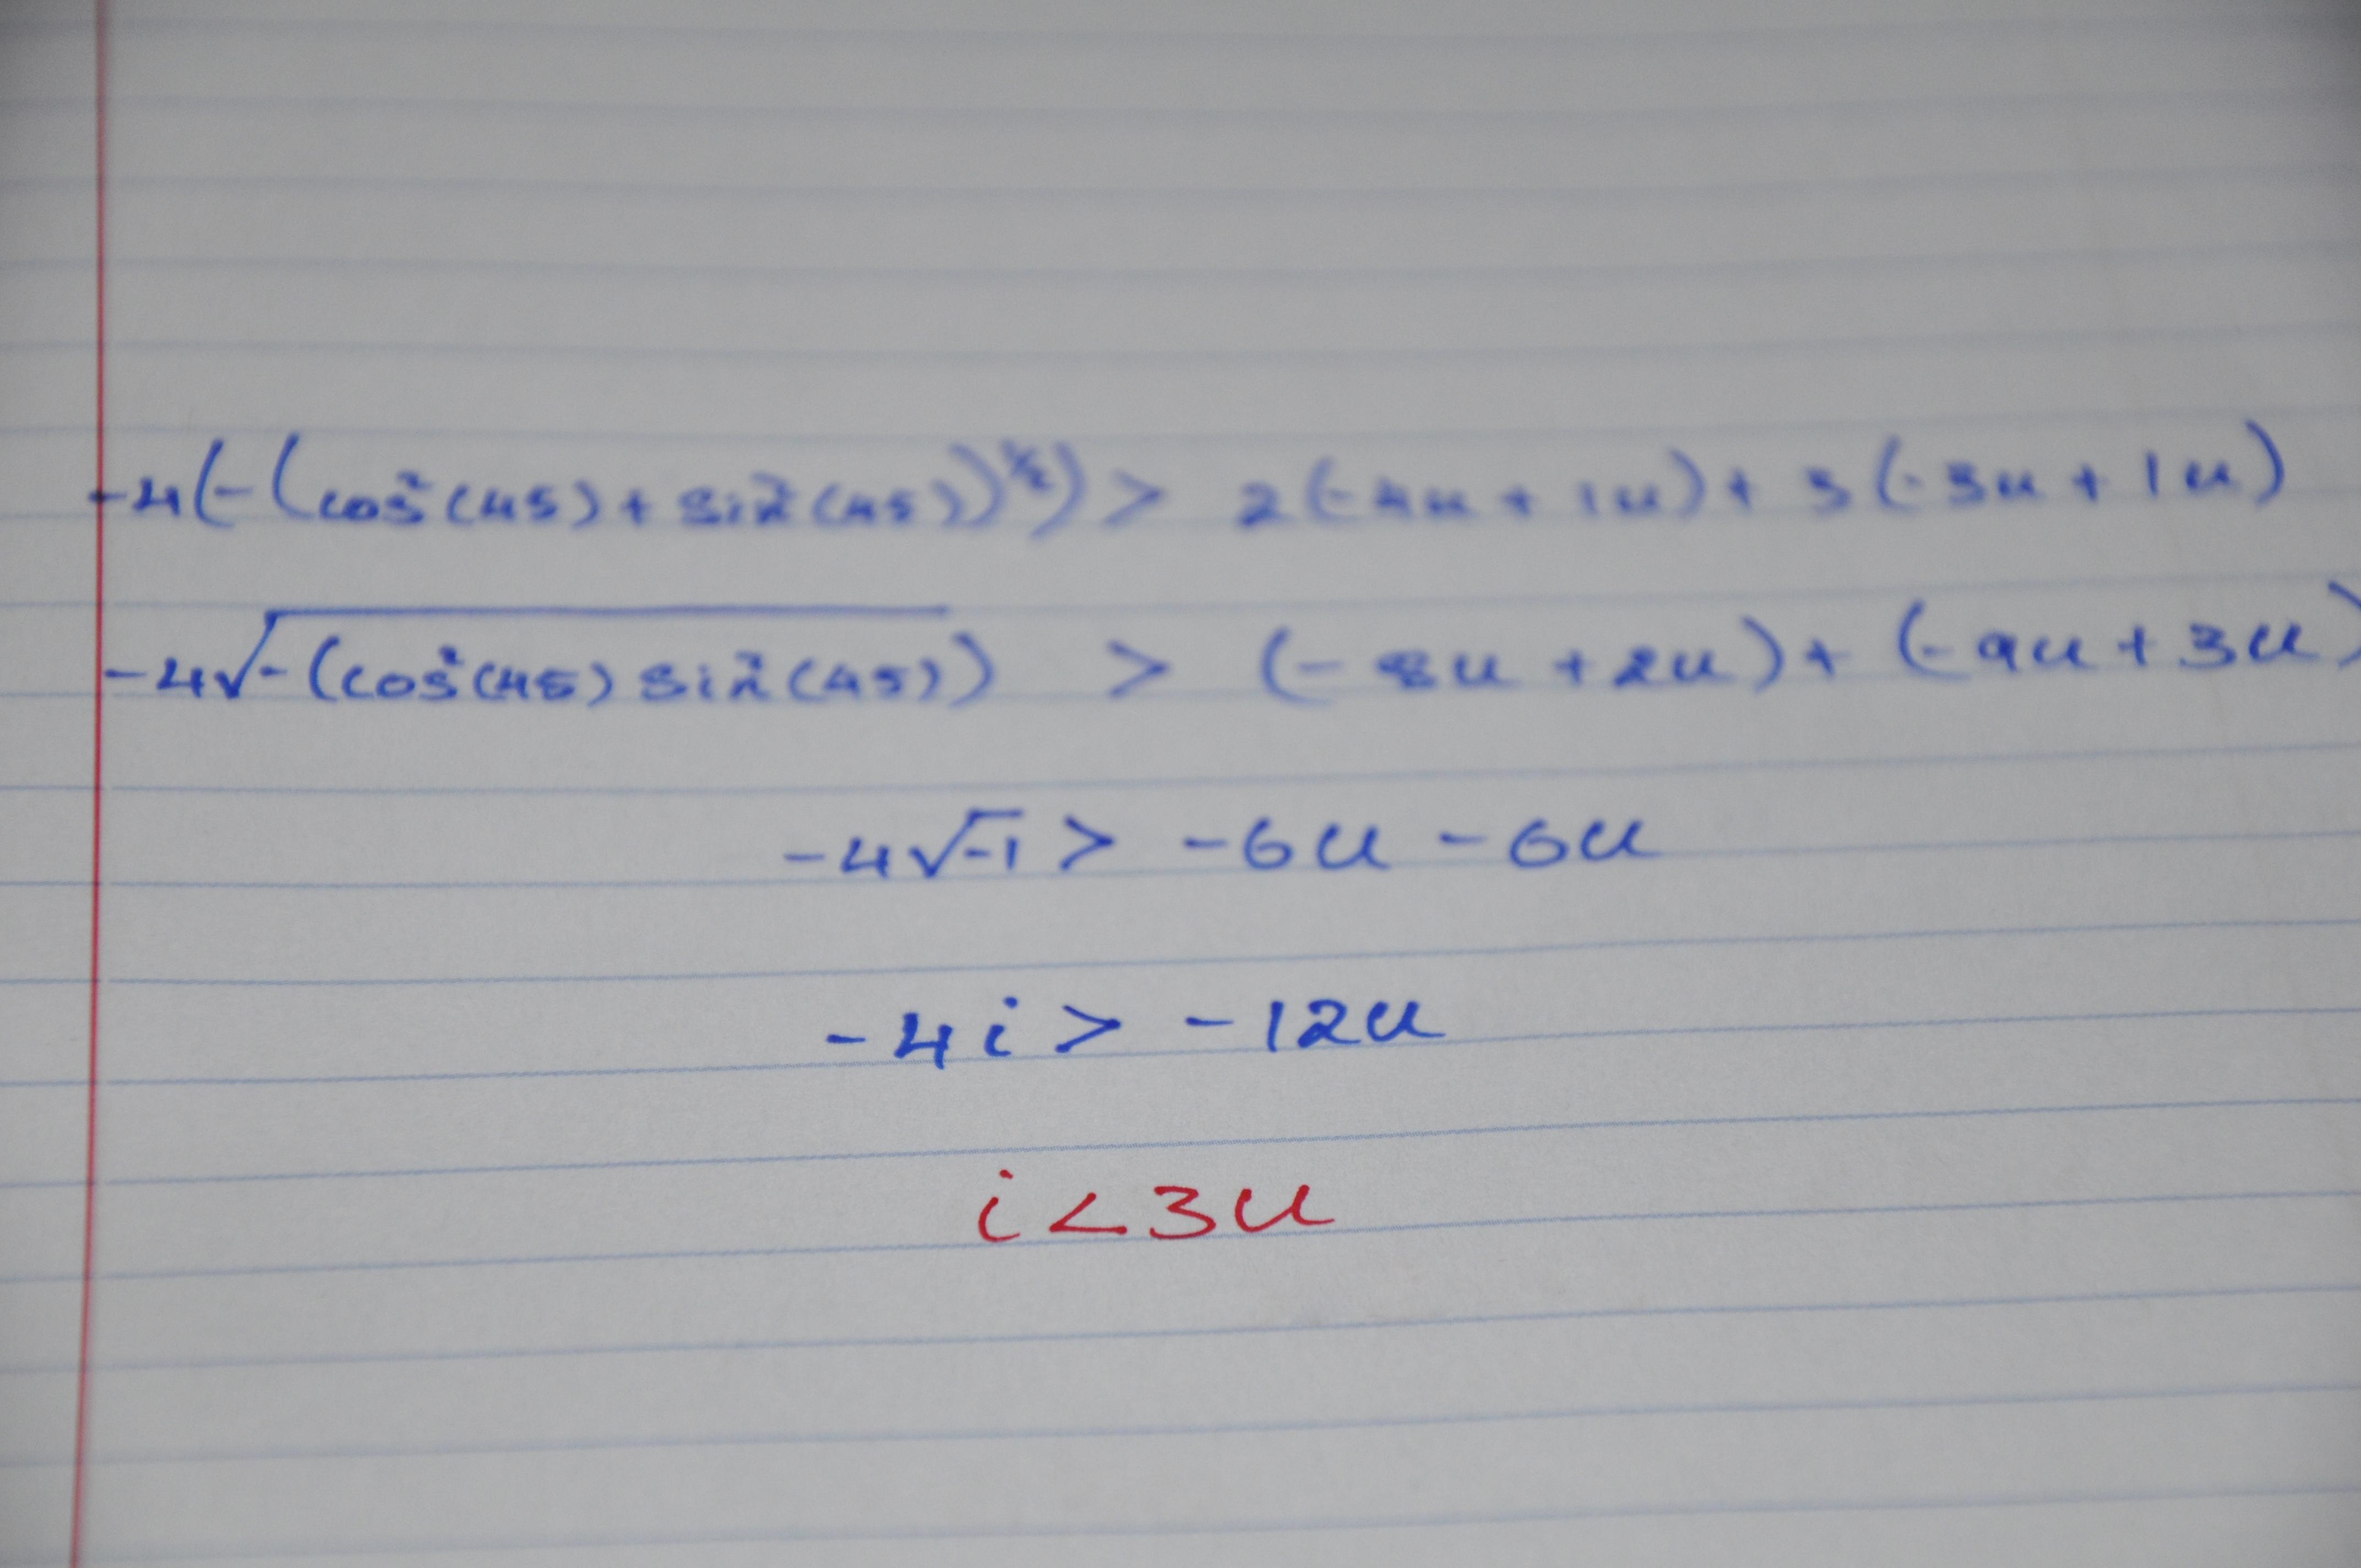 -4(-(cos²(45)+sin²(45))^½)> 2(-4u+1u)+3(-3u+1u)
-4√-(cos²(45) sin²(45)) > (-8u+2u)+(-9u+3u)
-4√-1 > -6u -6u
-4i > -12u
i < 3u